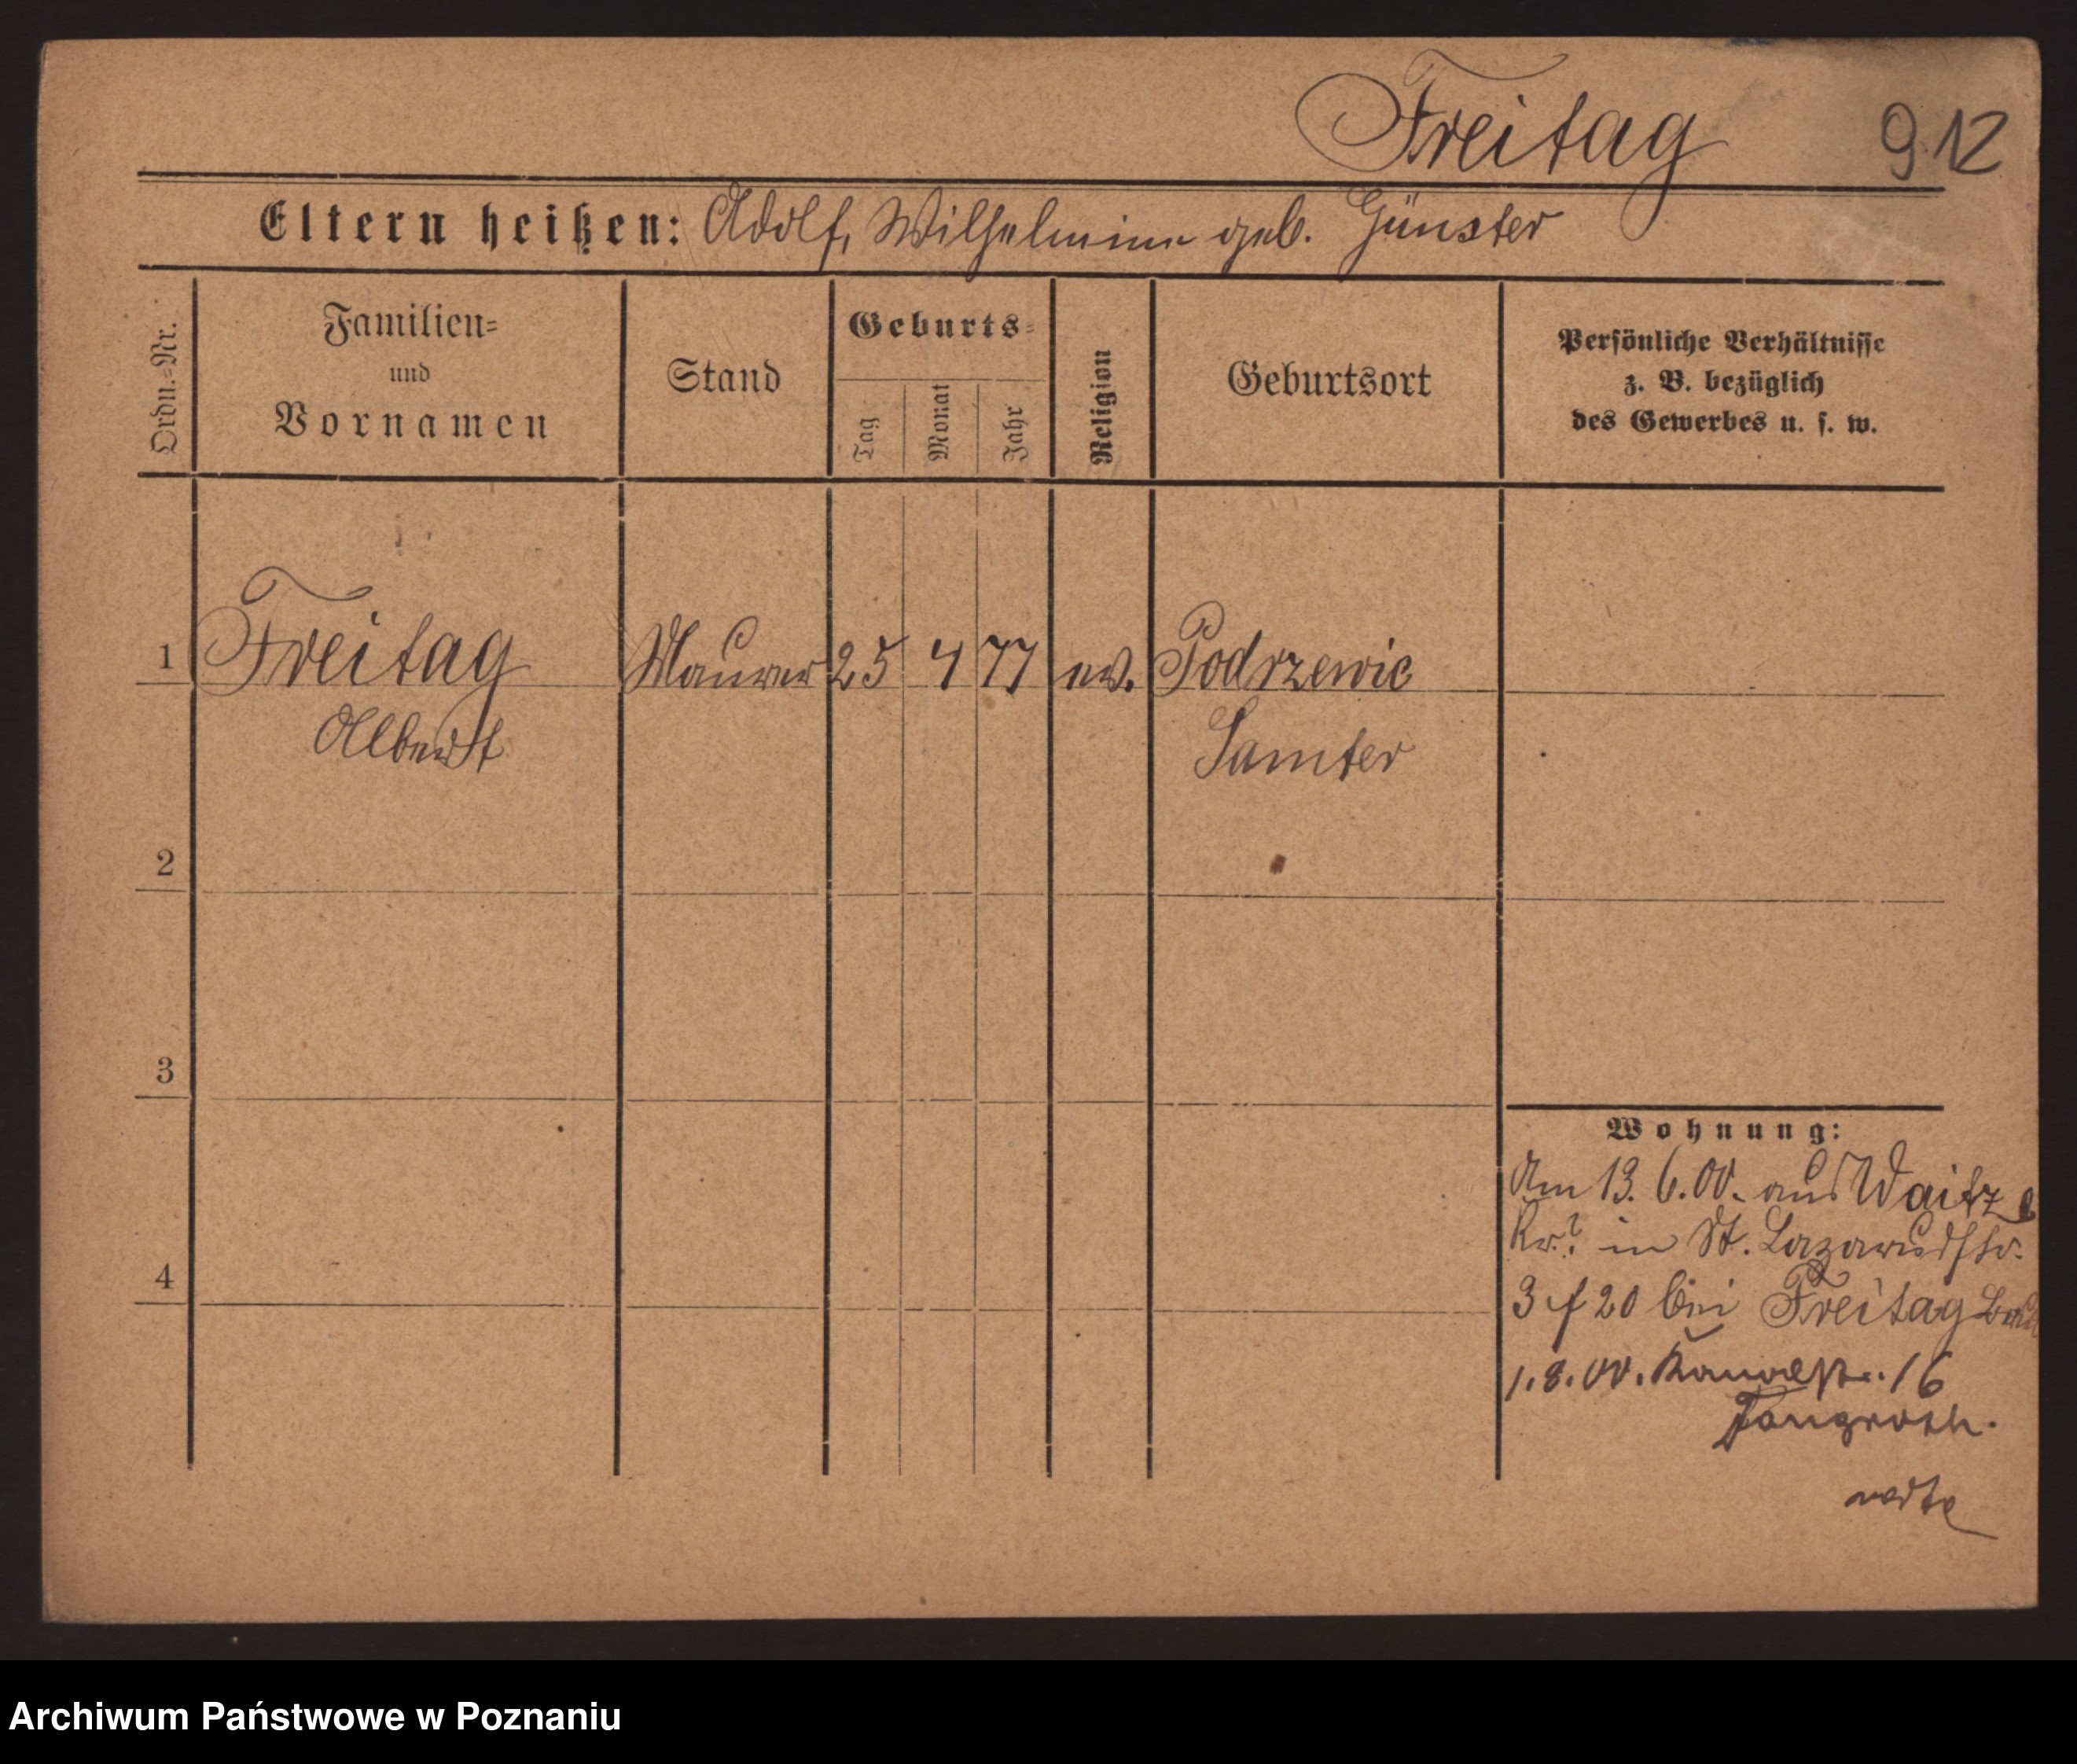 Freitag 912
Eltern heißen: Adolf, Wilhelmine geb. Günster
Ordn.=Nr.
Familien=
und
Vornamen
Stand
Geburts=
Tag
Monat
Jahr
Religion
Geburtsort
Persönliche Verhältnisse
z. B. bezüglich
des Gewerbes u. s. w.
1 Freitag Maurer 25 4 77 ev. Podrzewie
Albert Samter
2
3
4
Wohnung:
Am 13. 6. 00. aus Waitze
Kr.? in St. Lazarusstr.
3 f 20 bei Freitag
1. 8. 00. Kanalstr. 16
Archiwum Państwowe w Poznaniu